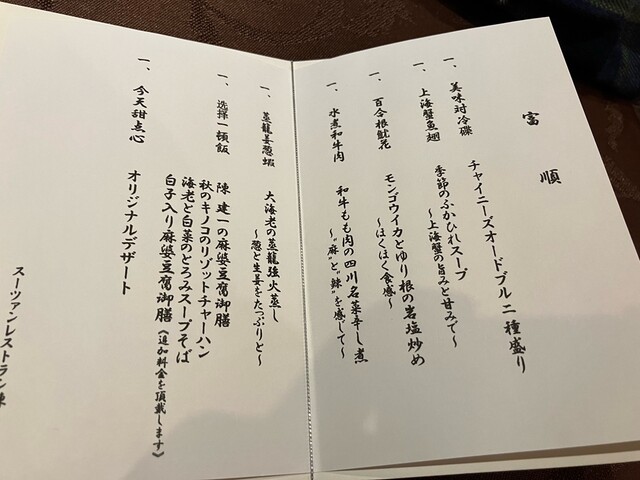 富順
一、美味対冷碟
チャイニーズオードブル二種盛り
一、上海蟹魚翅
季節のふかひれスープ
～上海蟹の旨みと甘みで～
一、百合根魷花
モンゴウイカとゆり根の岩塩炒め
～ほくほく食感～
一、水煮和牛肉
和牛もも肉の四川名菜辛し煮
～“麻”と“辣”を感じて～
一、蒸龍姜葱蝦
大海老の蒸籠強火蒸し
～葱と生姜をたっぷりと～
一、选择一頓飯
陳建一の麻婆豆腐御膳
秋のキノコのリゾットチャーハン
海老と白菜のとろみスープそば
白子入り麻婆豆腐御膳《追加料金を頂戴します》
一、今天甜点心
オリジナルデザート
スーツァンレストラン陳